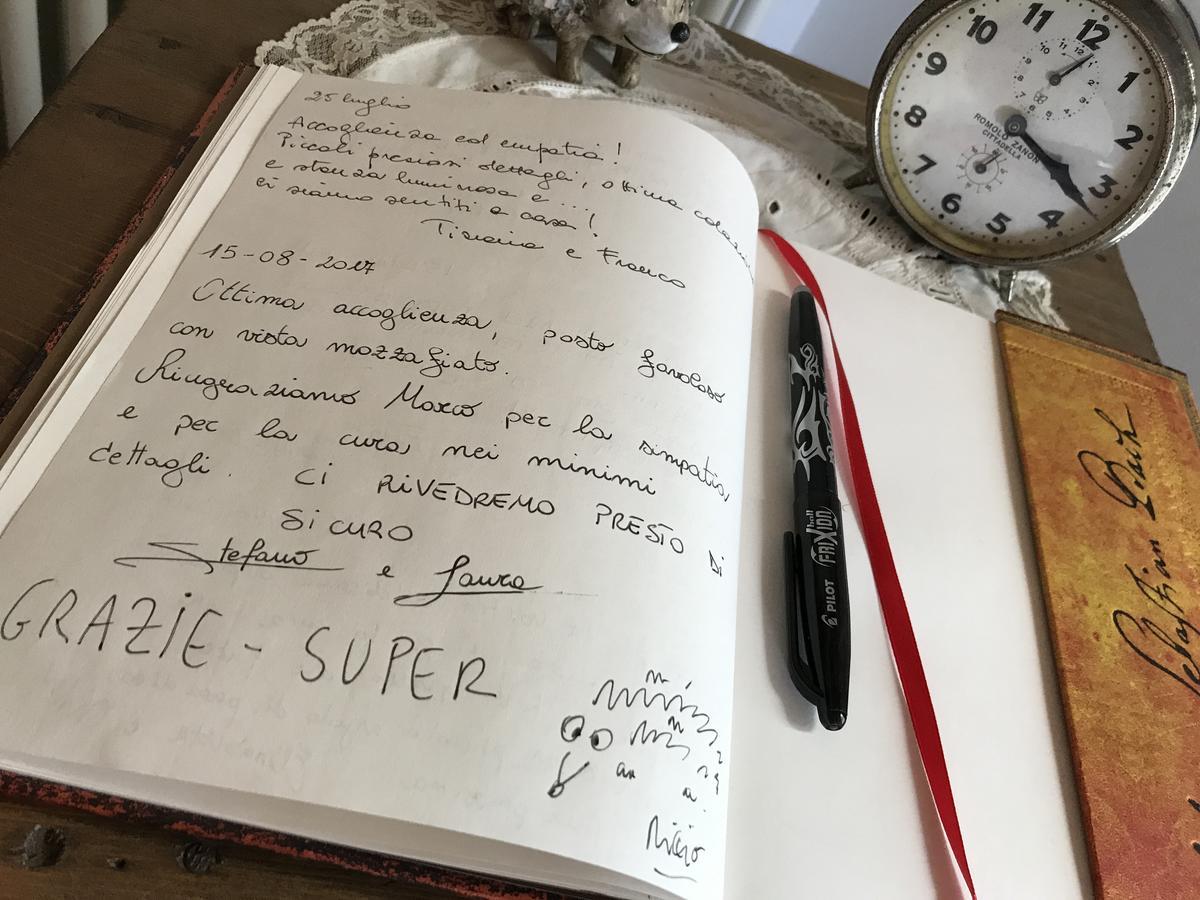 25 luglio
Accoglienza ed empatia!
Piccoli preziosi dettagli, ottima colazione
e stanza luminosa e ...!
ci siamo sentiti a casa!
Tiziana e Franco
15-08-2017
Ottima accoglienza, posto favoloso
con vista mozzafiato.
Ringraziamo Marco per la simpatia,
e per la cura nei minimi
dettagli. Ci RIVEDREMO PRESTO DI
SICURO
Stefano e Laura
GRAZIE - SUPER
Riccio
12
1
2
3
4
5
6
7
8
9
10
11
ROMOLO ZANON
CITTADELLA
PILOT FRIXION ball
Sebastian Bach